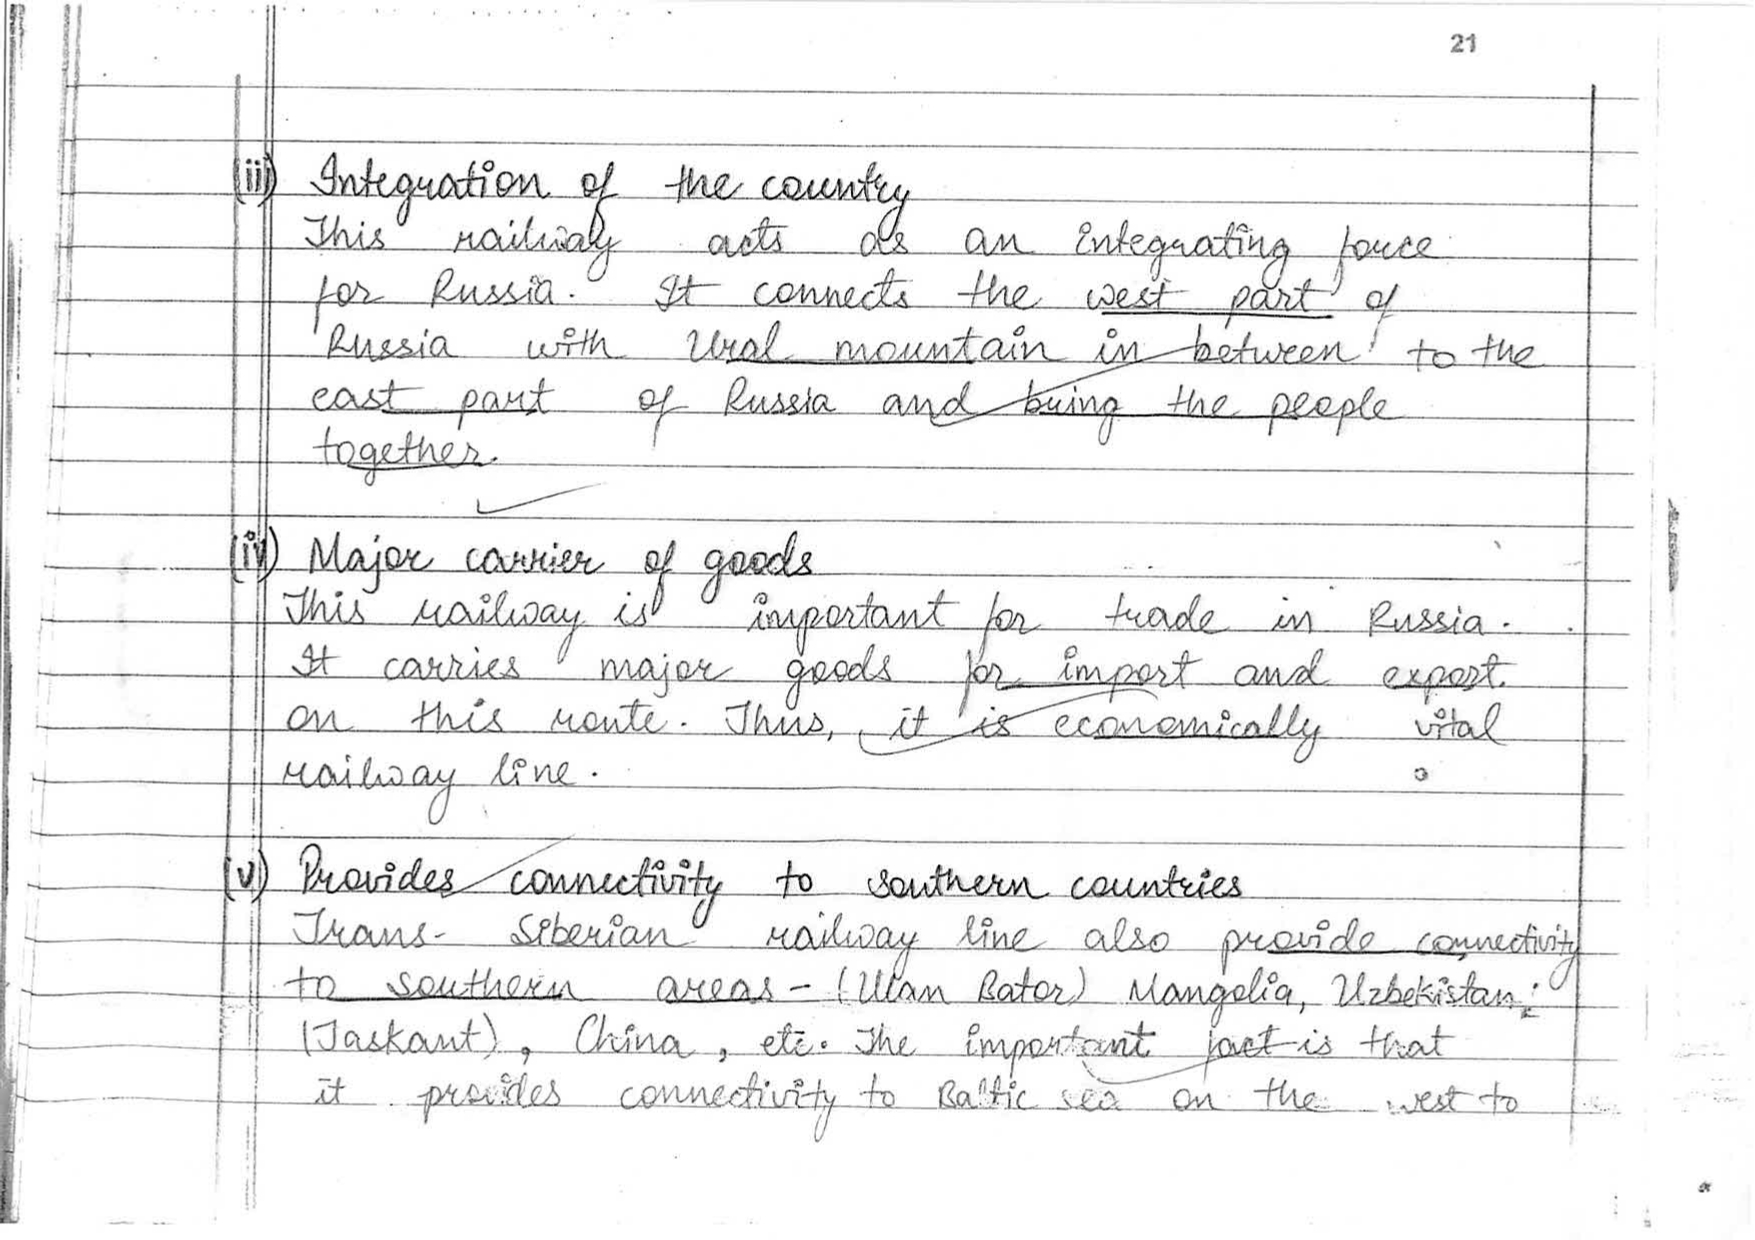 21
(iii) Integration of the country
This railway acts as an integrating force
for Russia. It connects the west part of
Russia with Ural mountain in between to the
east part of Russia and bring the people
together.
(iv) Major carrier of goods
This railway is important for trade in Russia.
It carries major goods for import and export
on this route. Thus, it is economically vital
railway line.
(v) Provides connectivity to southern countries
Trans- Siberian railway line also provide connectivity
to southern areas - (Ulan Bator) Mangolia, Uzbekistan
(Taskant), China, etc. The important fact is that
it provides connectivity to Baltic sea on the west to